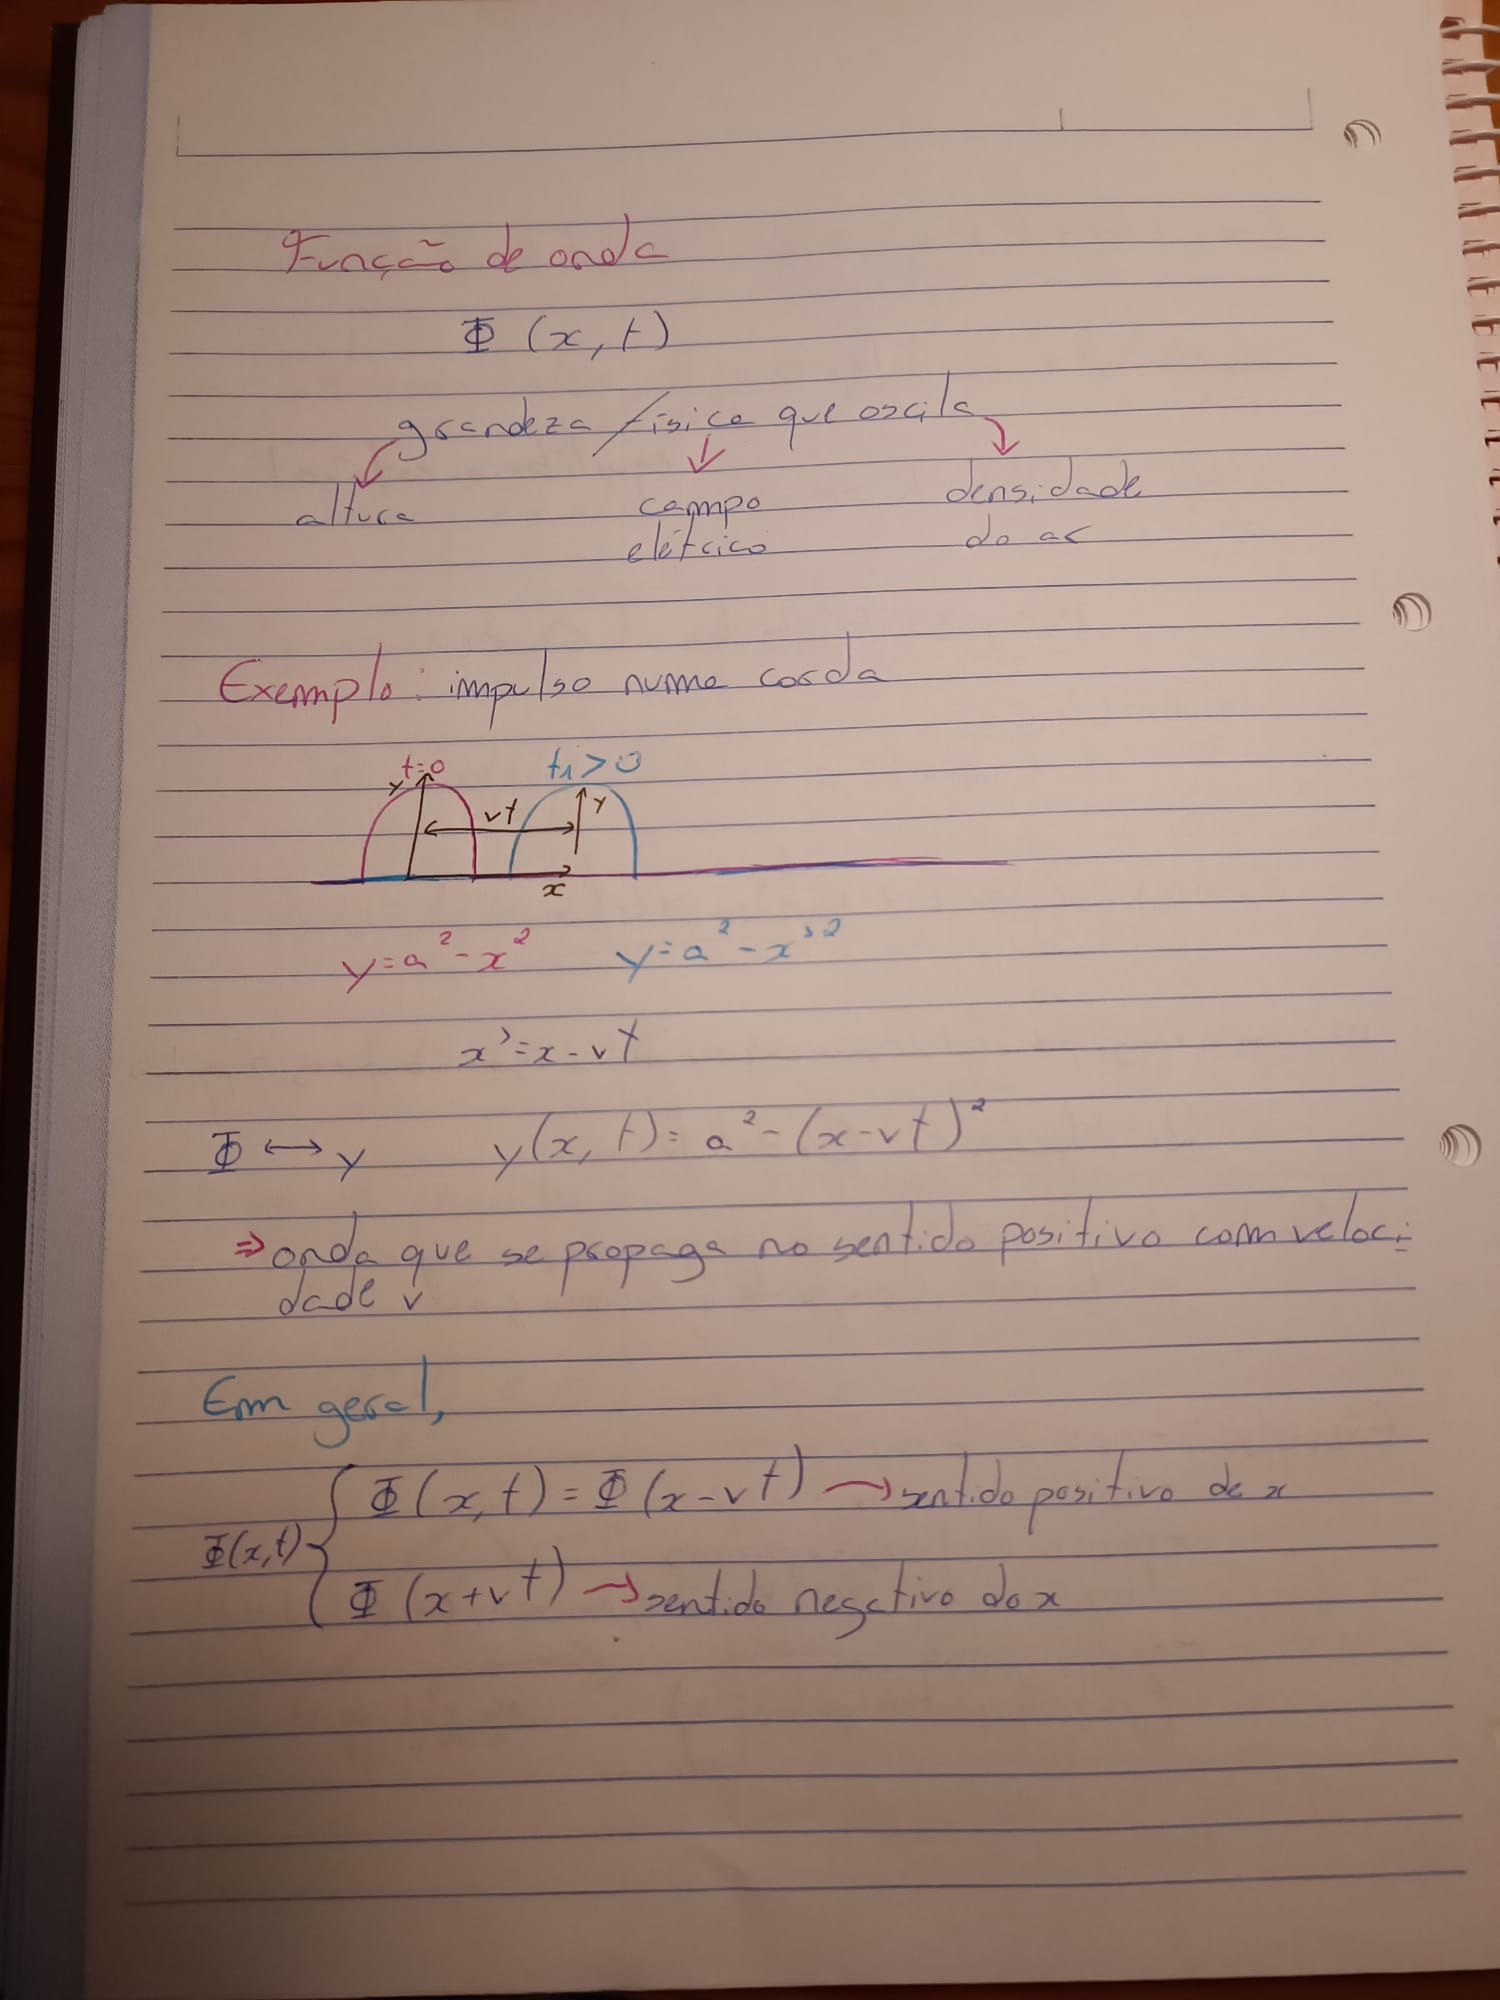 Função de onda
Φ (x, t)
grandeza física que oscila
altura campo elétrico densidade do ar
Exemplo: impulso numa corda
t=0 t₁ > 0
y vt y
x
y = a² - x² y = a² - x'²
x' = x - vt
Φ ↔ y y(x, t) = a² - (x - vt)²
⇒ onda que se propaga no sentido positivo com veloci-
dade v
Em geral,
Φ(x, t) = Φ(x - vt) → sentido positivo de x
Φ(x,t) {
Φ (x + vt) → sentido negativo do x